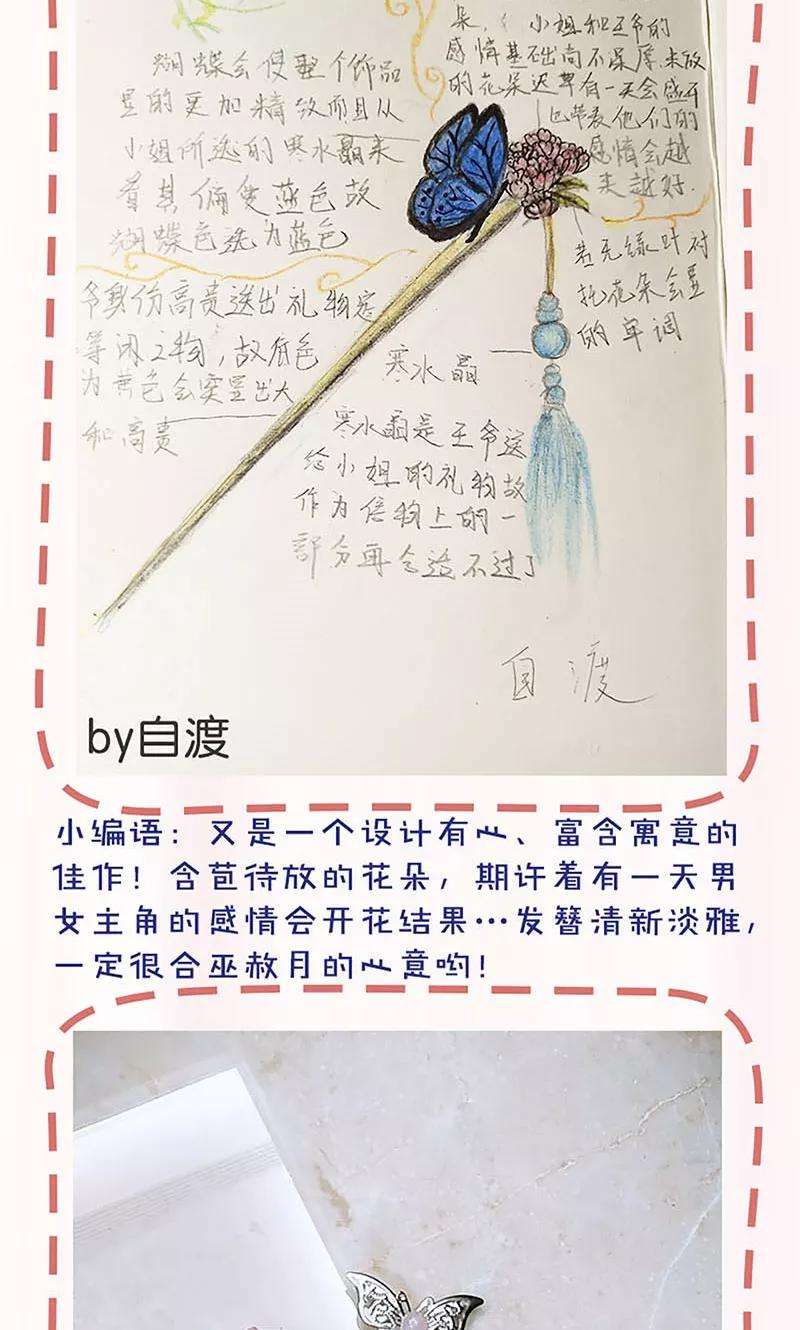 朵，小姐和王爷的
感情基础尚不深厚.未放
的花朵迟早有一天会盛开
也带表他们的
感情会越
来越好.
蝴蝶会使整个饰品
显的更加精致而且从
小姐所选的寒水晶来
看其偏爱蓝色故
蝴蝶色选为蓝色
若无绿叶衬
托花朵会显
的单调
爷身份高贵送出礼物定
等闲之物，故底色
为黄色会突显出大
和高贵
寒水晶
寒水晶是王爷送
给小姐的礼物故
作为信物上的一
部分再合适不过了
自渡
by自渡
小编语：又是一个设计有心、富含寓意的
佳作！含苞待放的花朵，期许着有一天男
女主角的感情会开花结果…发簪清新淡雅，
一定很合巫赦月的心意哟！